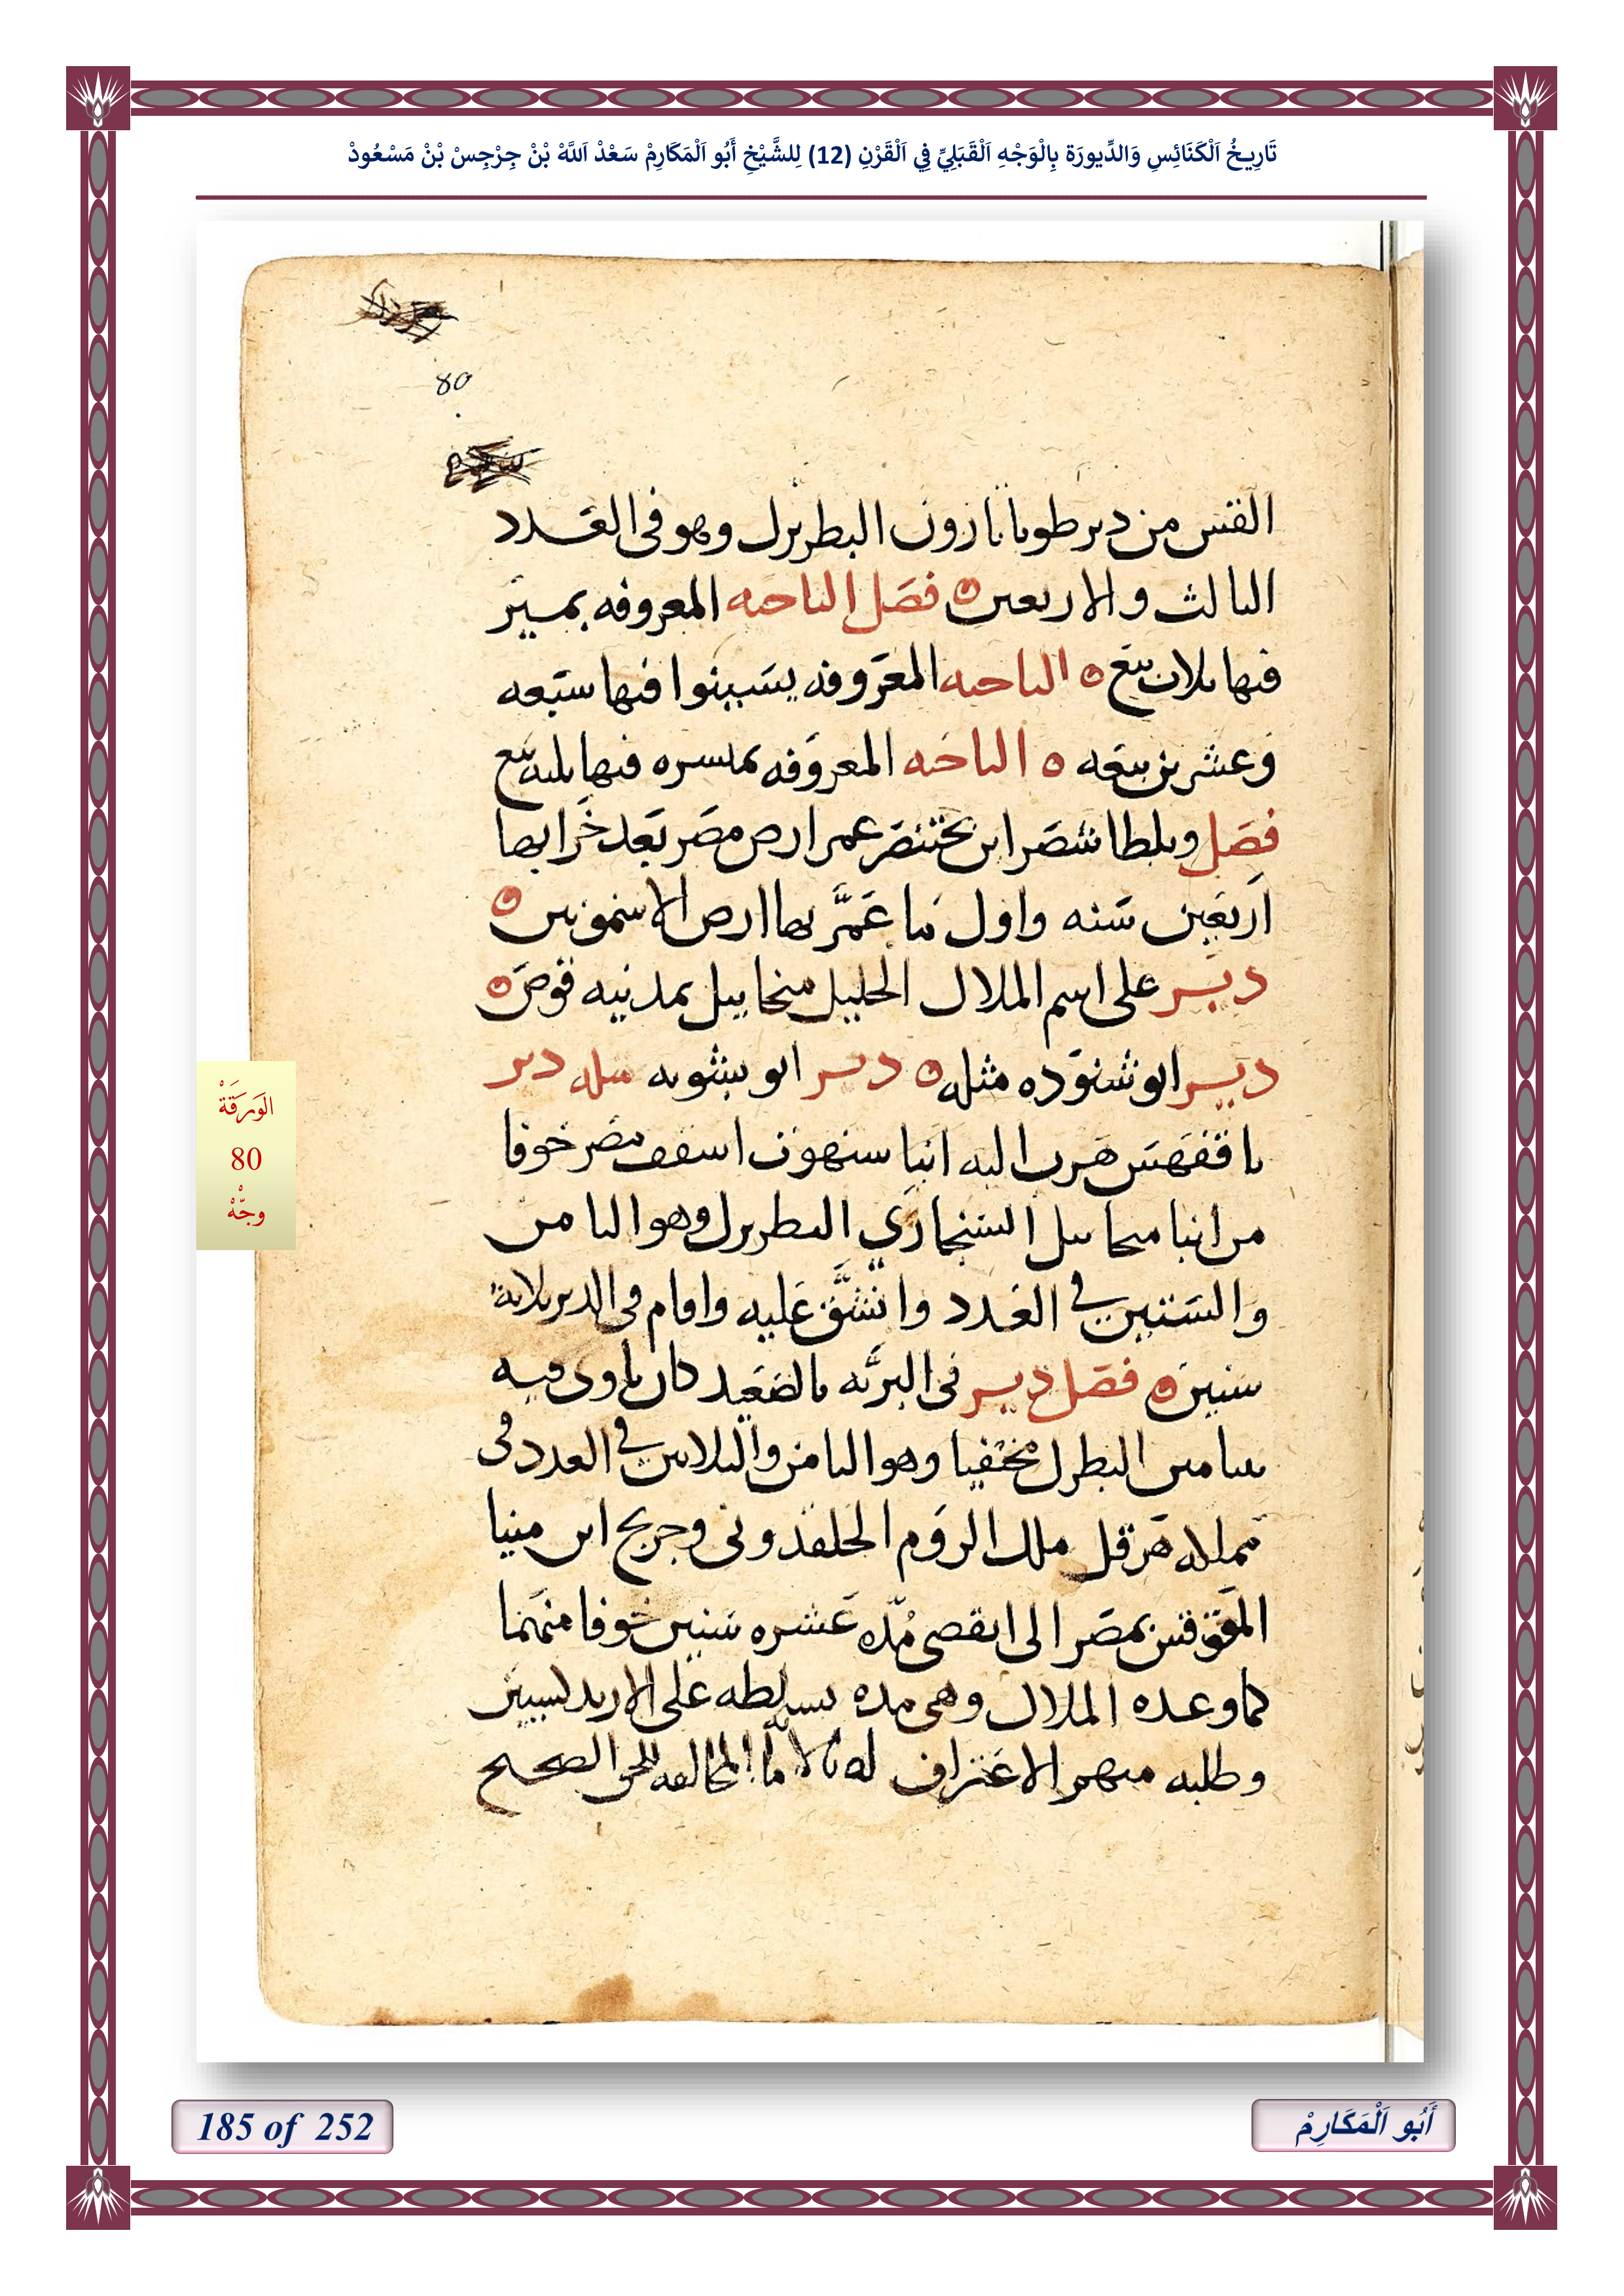 تَارِيخُ اَلْكَنَائِسِ وَالدِّيورَة بِالْوَجْهِ اَلْقَبَلِيِّ فِي اَلْقَرْنِ (12) لِلشَّيْخِ أَبُو اَلْمَكَارِمْ سَعْدْ اَللَّهْ بْنْ جِرْجِسْ بْنْ مَسْعُودْ
80
القس من دير طويا بارون البطريرك وهو في العدد
الثالث والاربعين فصل الناحيه المعروفه بمير
فيها ثلاث بيع الناحيه المعروفه يسبنوا فيها سبعه
وعشرين بيعه الناحيه المعروفه بمنسره فيها ثلثه بيع
فصل وبلطاشصر ابن بختنصر عمر ارض مصر بعد خرابها
اربعين سنه واول ما عمر بها ارض الاشمونين
دير على اسم الملاك الجليل ميخاييل بمدينه قوص
دير ابو شنوده مثله دير ابو بشونه مثله دير
باقفهس هرب اليه انبا سنهوت اسقف مصر خوفا
من انبا ميخاييل السنجاري البطريرك وهو الثامن
والستين في العدد وانشق عليه واقام في الدير ثلاثة
سنين فصل دير في البريه بالصعيد كان ياوى فيه
بنيامين البطرك مختفيا وهو الثامن والثلاثين في العدد في
مملكه هرقل ملك الروم الخلقدوني وجريج ابن مينا
المقوقس بمصر الى انقضى مده عشره سنين خوفا منهما
كما وعده الملاك وهي مده تسلطه على الارتدكسيين
وطلبه منهم الاعتراف له بالامانه المخالفه للحق الصحيح
الوَرَقَةْ
80
وجّهْ
185 of 252
أَبُو اَلْمَكَارِمْ